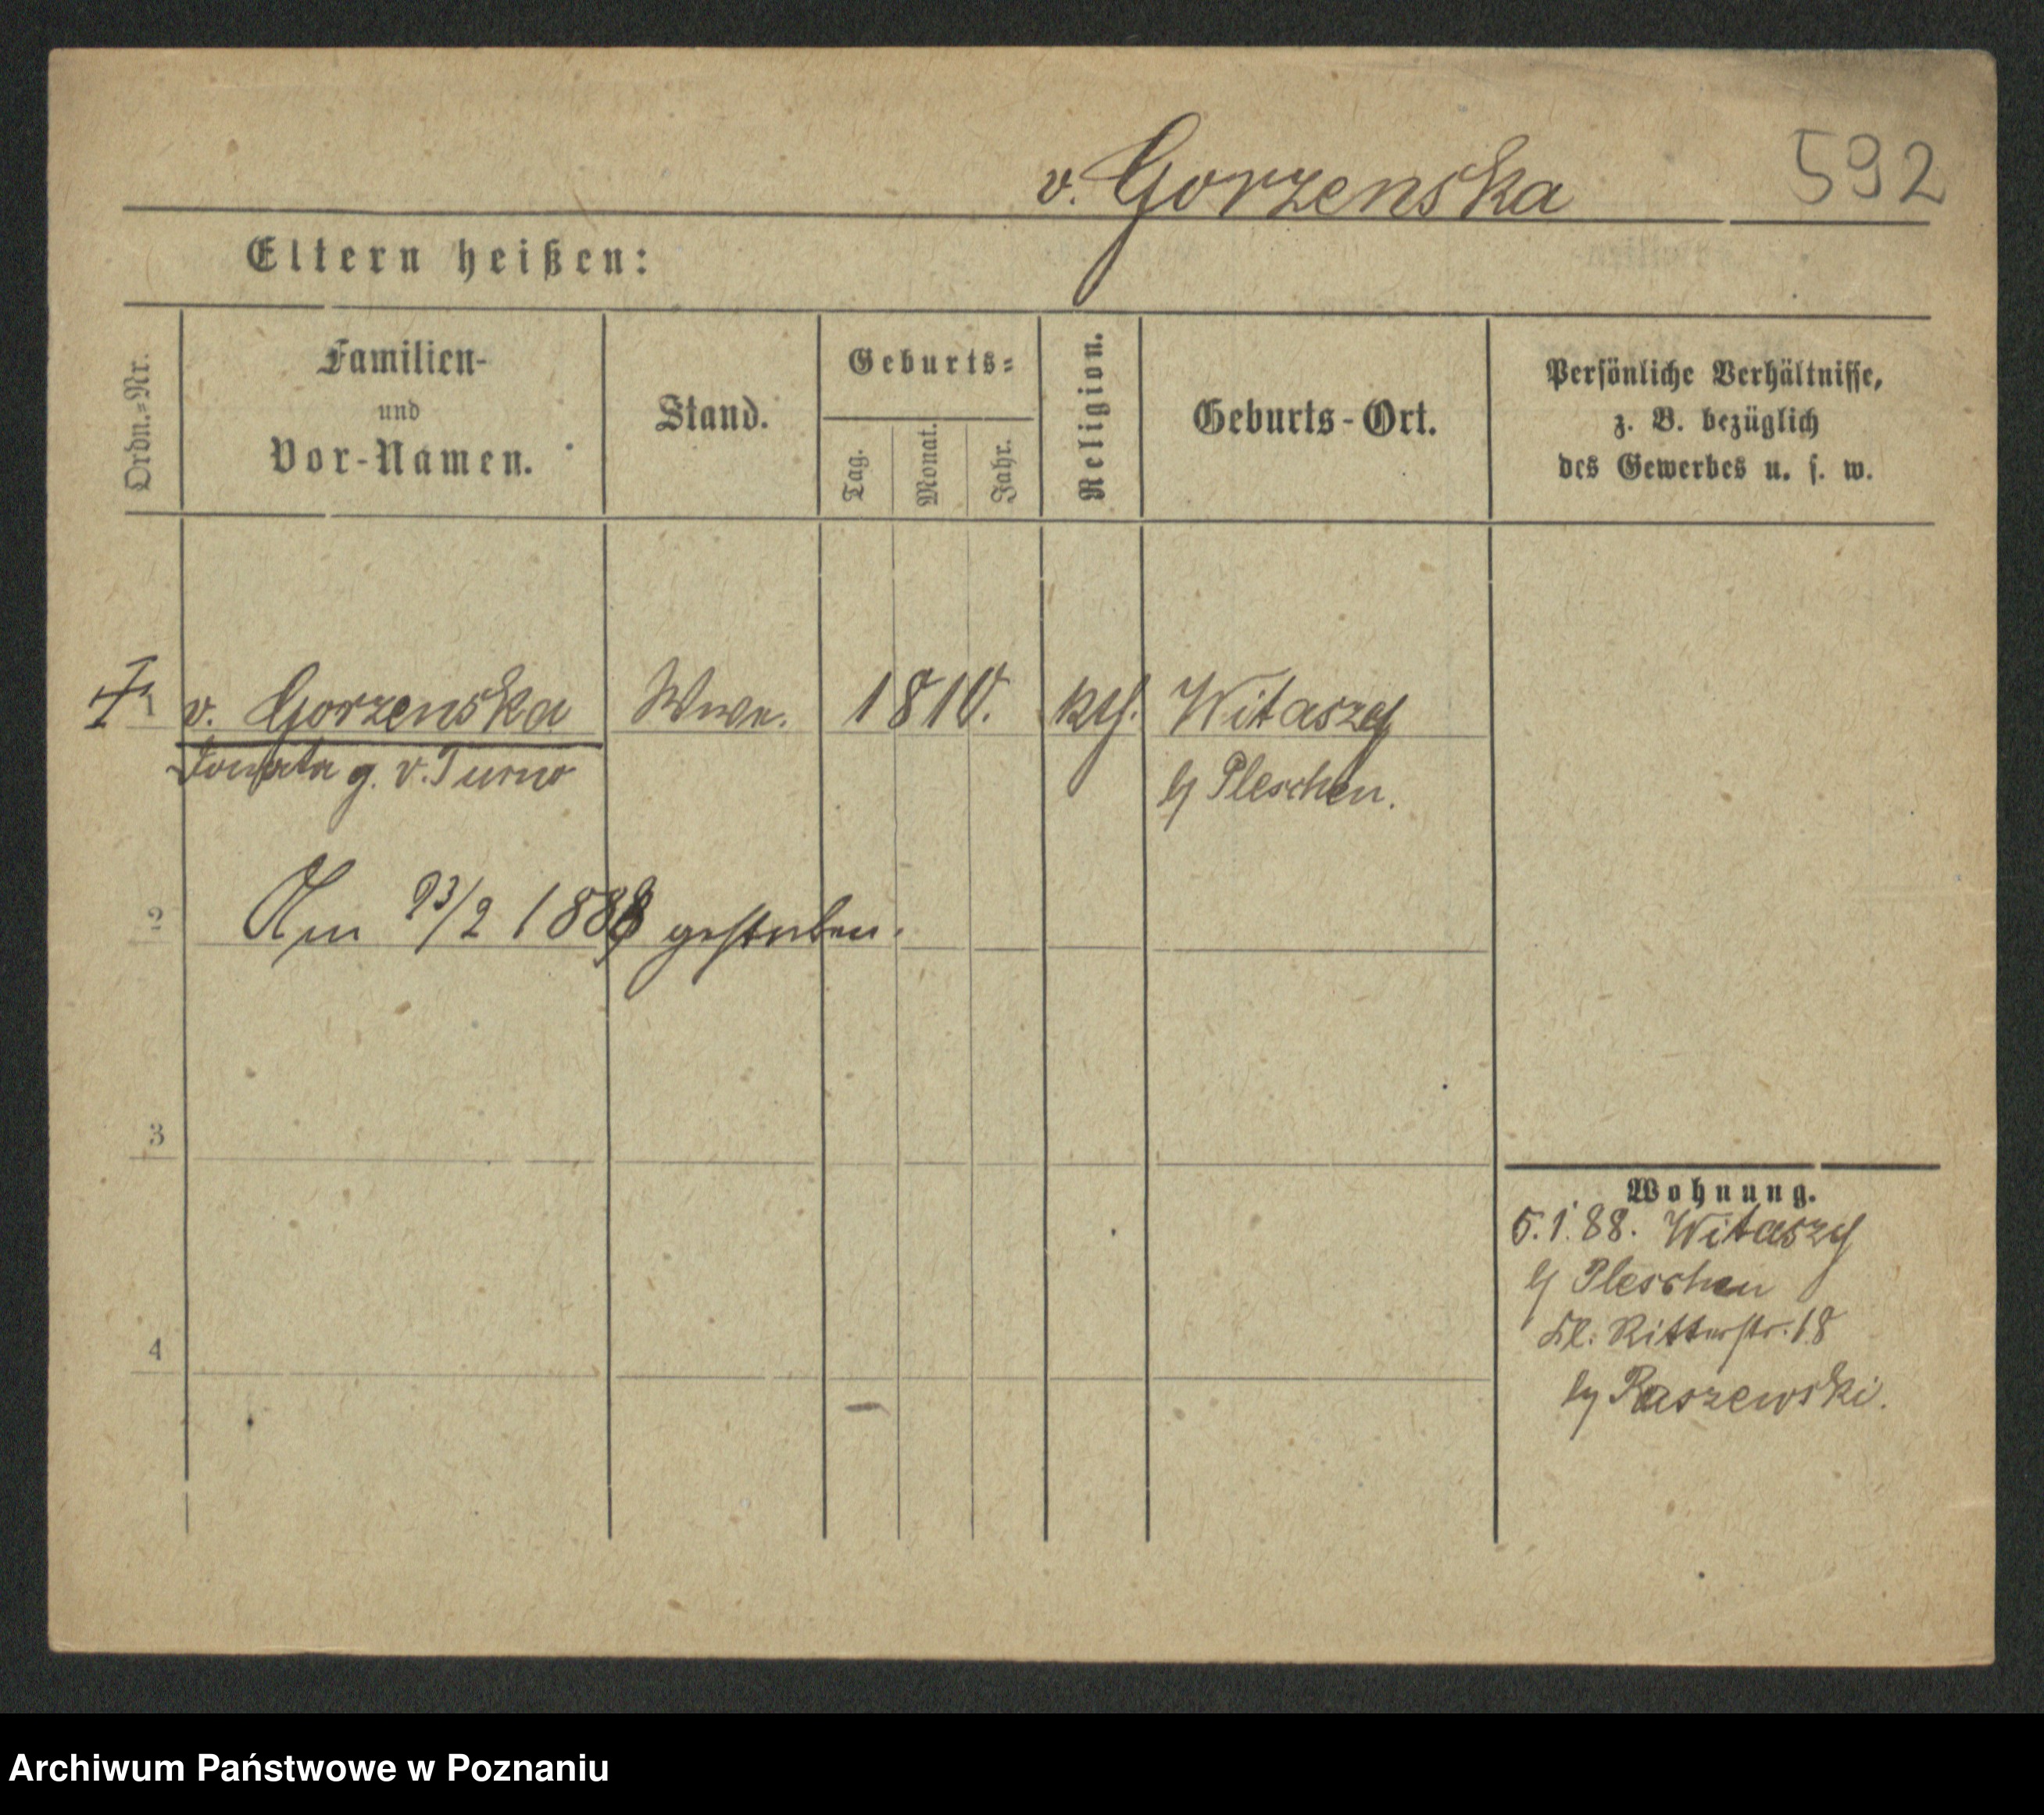 v. Gorzenska 592
Eltern heißen:
Ordn.=Nr.
Familien-
und
Vor-Namen.
Stand.
Geburts=
Tag.
Monat.
Jahr.
Religion.
Geburts-Ort.
Persönliche Verhältnisse,
z. B. bezüglich
des Gewerbes u. s. w.
1 v. Gorzenska Wwe. 1810. kth. Witaszy
g. v. Turno b/ Pleschen.
2 Am 23/2 1888 gestorben.
3
4
Wohnung.
5.1.88. Witaszy
b/ Pleschen
Kl. Ritterstr. 18
by Raszewski.
Archiwum Państwowe w Poznaniu